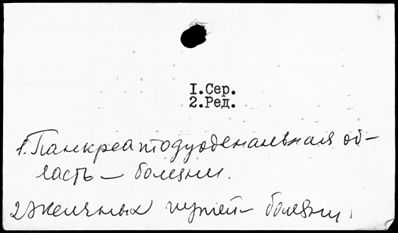 I.Сер.
2.Ред.
1. Панкреатодуоденальная об-
ласть — болезни.
2 Желчных путей — болезни.